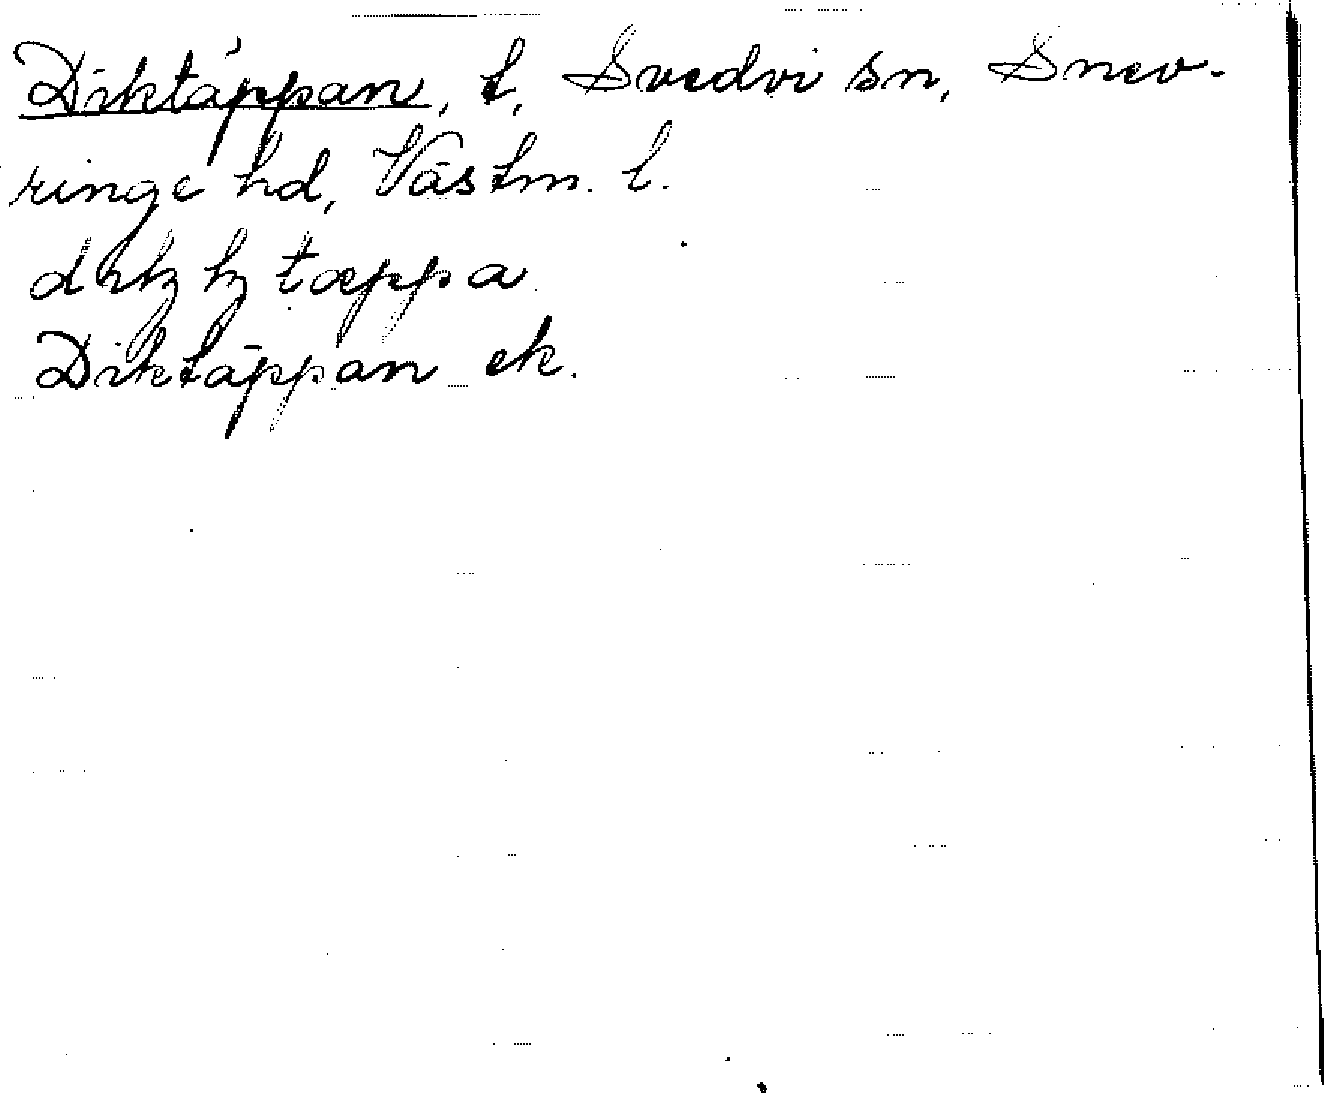 Diktäppan, t, Svedvi sn, Snev-
ringe hd, Västm. l.
Diktäppan ek.